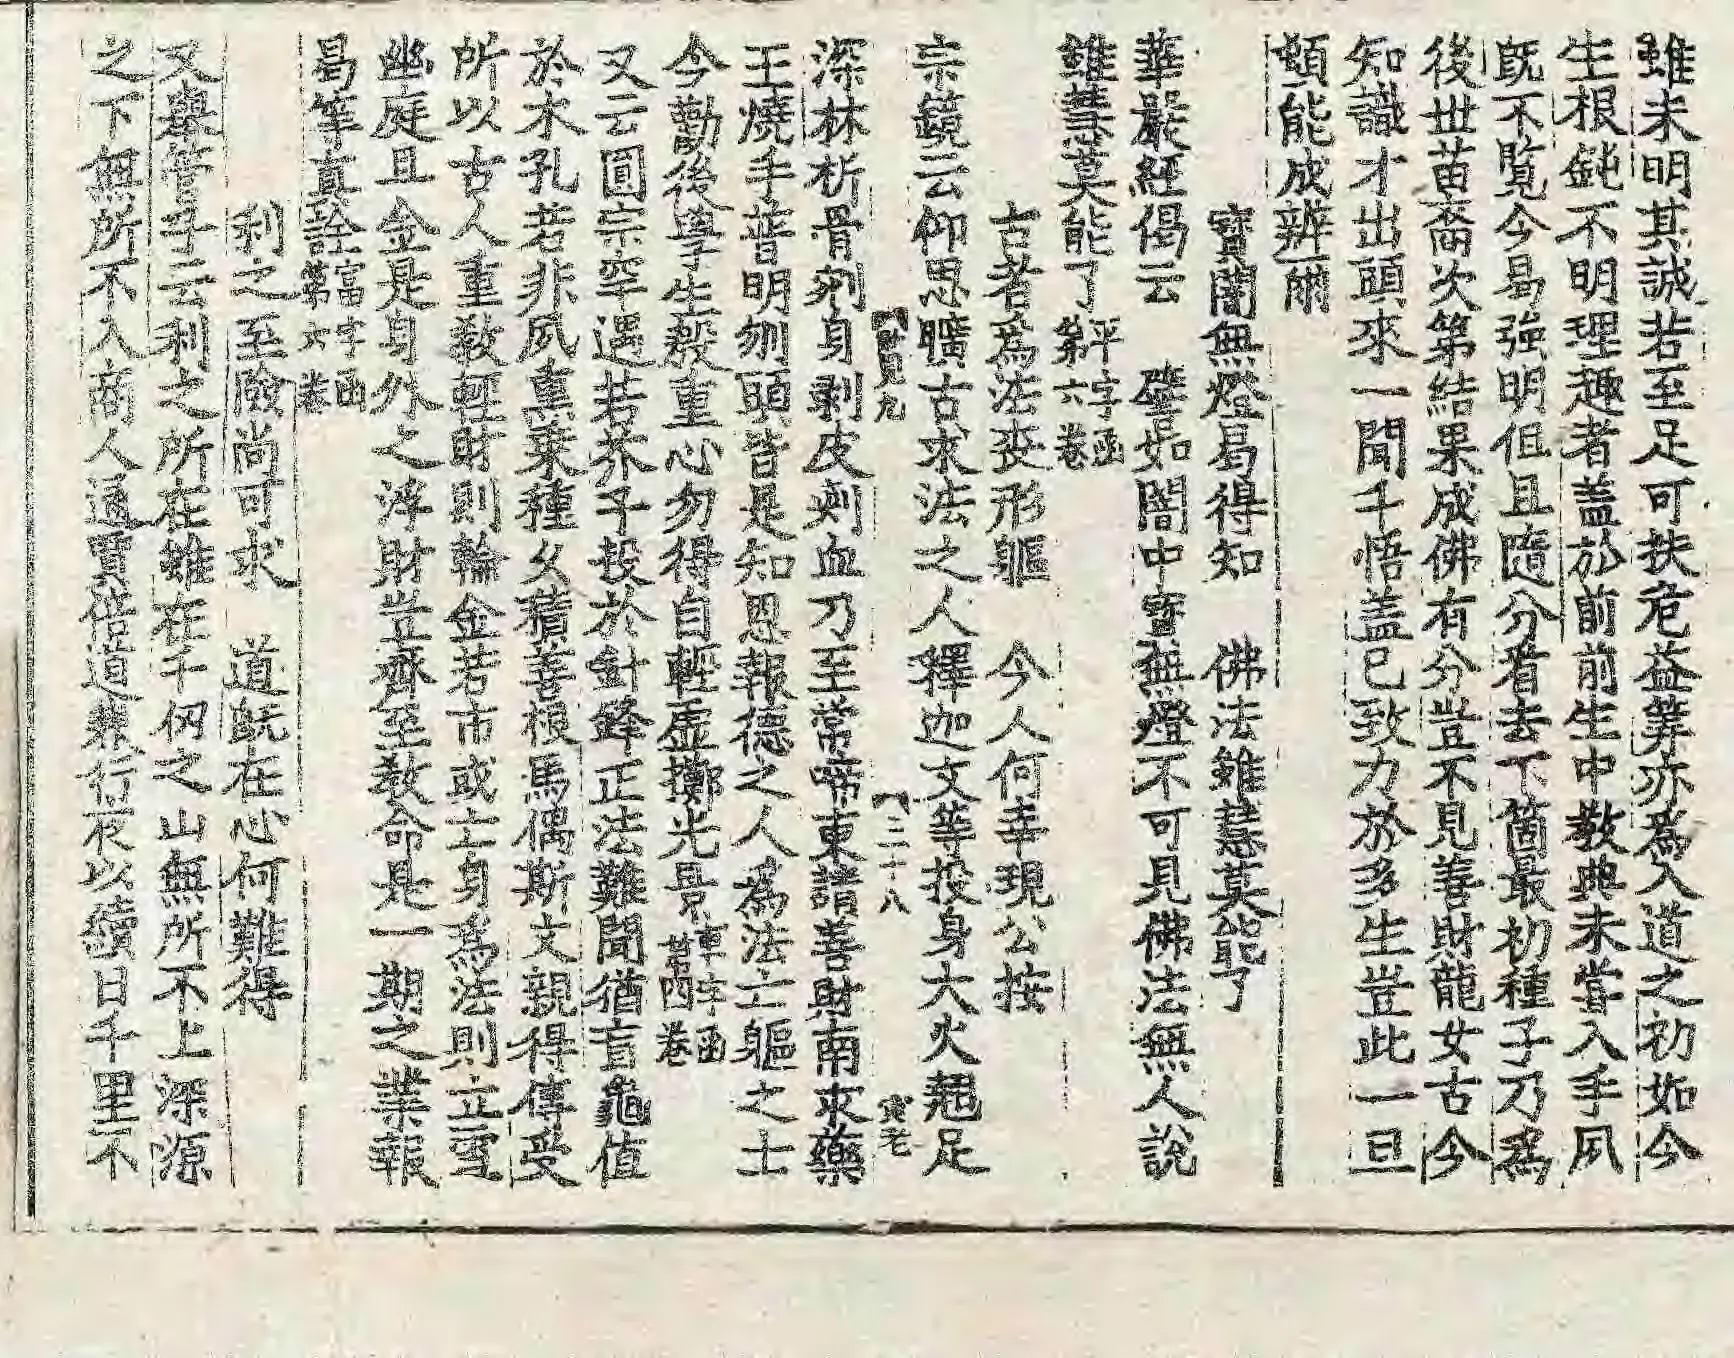 雖未明其誠若至足可扶危益筭亦爲入道之初如今
生根鈍不明理趣者盖於前前生中教典未甞入手夙
旣不覧今曷強明但且隨分看去下箇最初種子乃爲
後世苗裔次第結果成佛有分豈不見善財龍女古今
知識才出頭來一聞千悟盖已致力於多生豈此一旦
頓能成辦爾
寶闇無燈曷得知　佛法雖慧莫能了
華嚴經偈云　譬如闇中寶無燈不可見佛法無人說
雖慧莫能了平字函第六卷
古者爲法喪形軀　今人何幸現公按
宗鏡云仰思曠古求法之人釋迦文等投身大火翹足
【賢九　【三十八
深林析骨剜身剥皮刺血乃至常啼東請善財南求藥
王燒手普明刎頭皆是知恩報德之人爲法亡軀之士
今勸後學生殷重心勿得自輕虛擲光景車字函第四卷
又云圓宗罕遇若芥子投於針鋒正法難聞猶盲龜值
於木孔若非夙熏乘種久積善根焉偶斯文親得傳受
所以古人重教輕財則輸金若市或亡身爲法則立雪
幽庭且金是身外之浮財豈齊至教命是一期之業報
曷等真詮富字函第六卷
利之至險尚可求　道旣在心何難得
又舉管子云利之所在雖在千仞之山無所不上深源
之下無所不入商人通賈倍道兼行夜以續日千里不